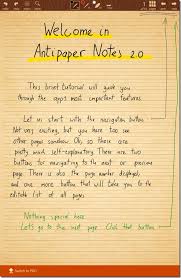 Welcome in
Antipaper Notes 2.0
This brief tutorial will guide you
through the app's most important features.
Let us start with the navigation button
Not very exciting, but you have to see
other pages somehow. Ok, so these are
pretty much self-explanatory. There are two
buttons for navigating to the next or previous
page. There is also the page number displayed,
and one more button that will take you to the
editable list of all pages.
Nothing special here.
Let's go to the next page. Click that button
Switch to PRO!